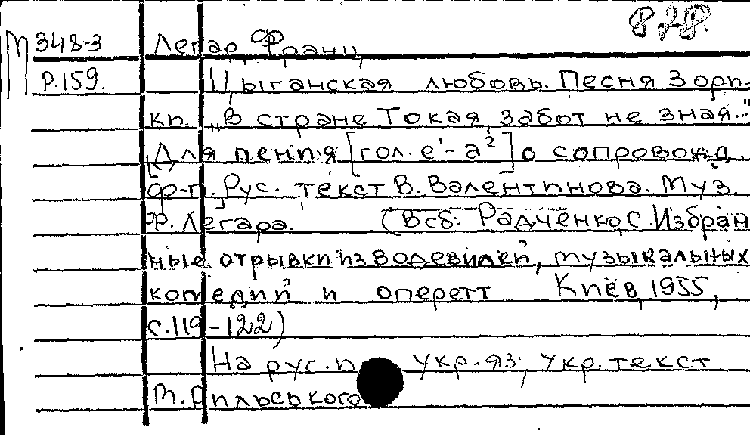 828.
М 348-3 Легар, Франц
Р.159. Цыганская любовь. Песня Зорп-
кп. „В стране Токая, забот не зная..."
[Для пенпя [гол. e'-a²] с сопровожд.
ф-п.] Рус. текст В. Валентпнова. Муз.
Ф. Легара. (В сб.: Радченко, С. Избран
ные отрывкп пз водевплей, музыкальных
комедпй п оперетт Кпев, 1955,
с. 119-122)
На рус. п укр. яз., укр. текст
М. Рильського